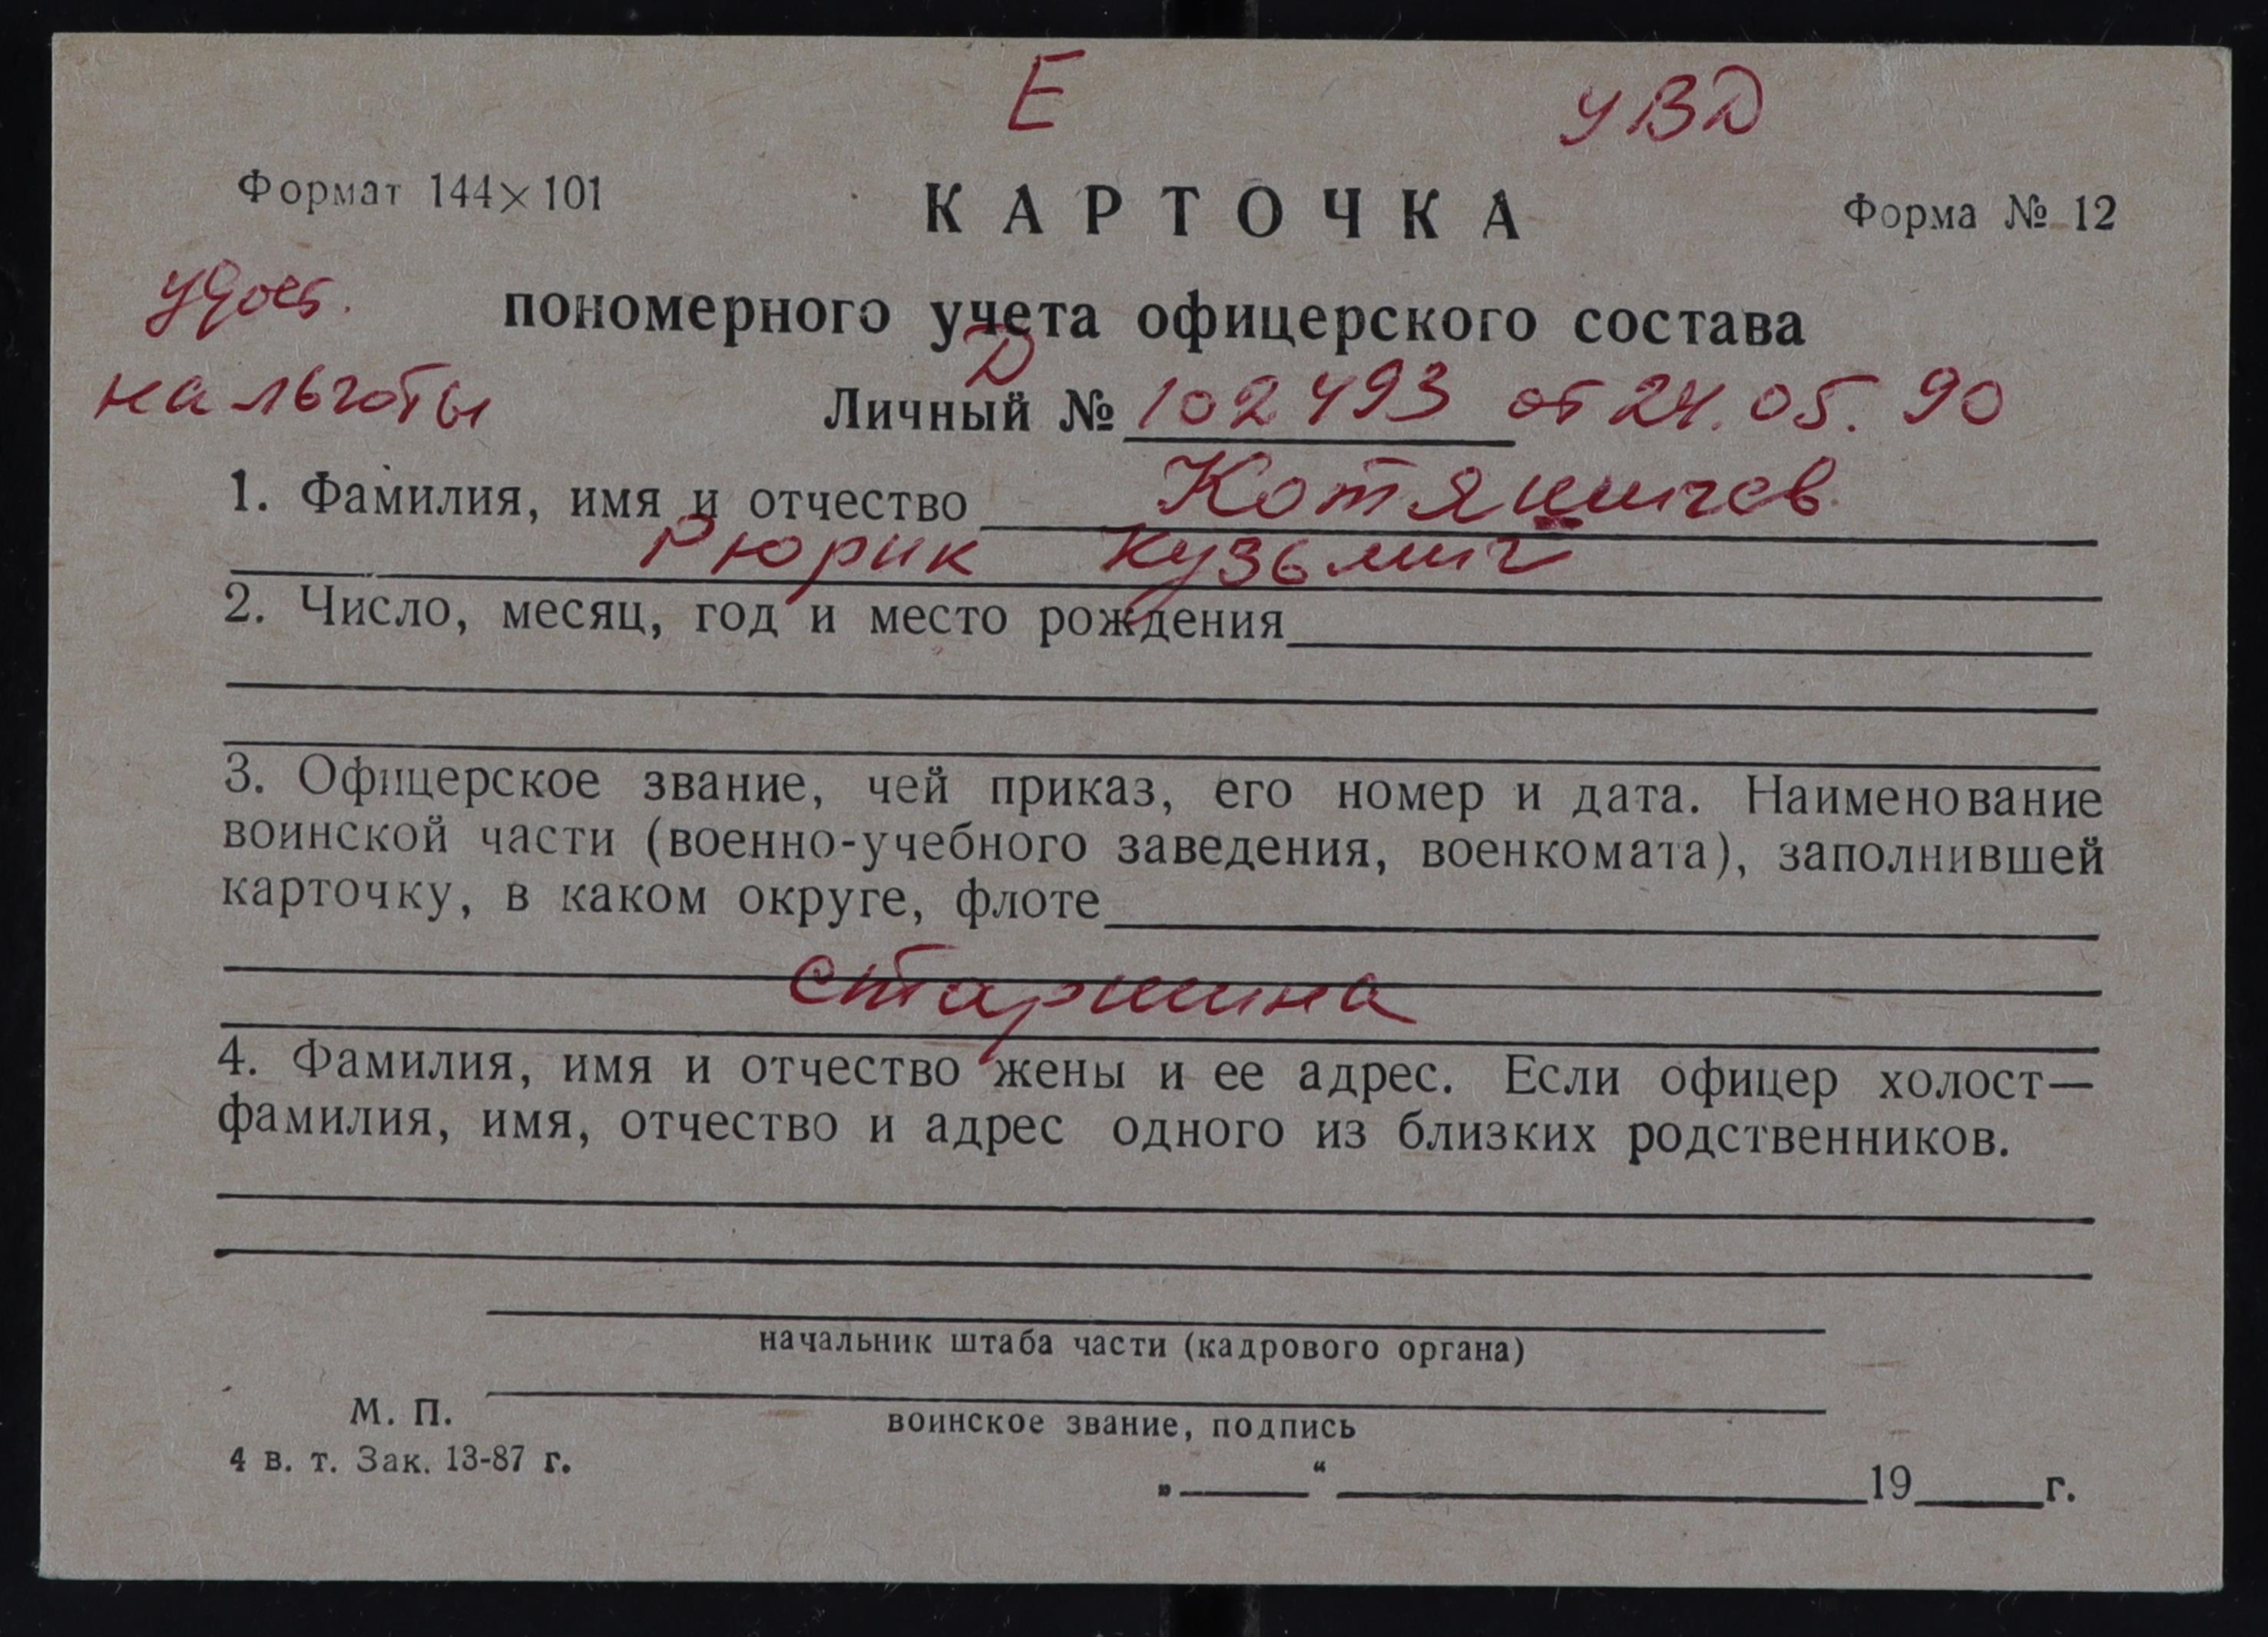 Е УВД
Формат 144×101 КАРТОЧКА Форма № 12
удост.
пономерного учета офицерского состава
на льготы
Д
Личный № 102493 от 24.05.90
1. Фамилия, имя и отчество
Рюрик Кузьмич
2. Число, месяц, год и место рождения
3. Офицерское звание, чей приказ, его номер и дата. Наименование
воинской части (военно-учебного заведения, военкомата), заполнившей
карточку, в каком округе, флоте
старшина
4. Фамилия, имя и отчество жены и ее адрес. Если офицер холост—
фамилия, имя, отчество и адрес одного из близких родственников.
начальник штаба части (кадрового органа)
М. П.
воинское звание, подпись
4 в. т. Зак. 13-87 г.
„ “ 19 г.